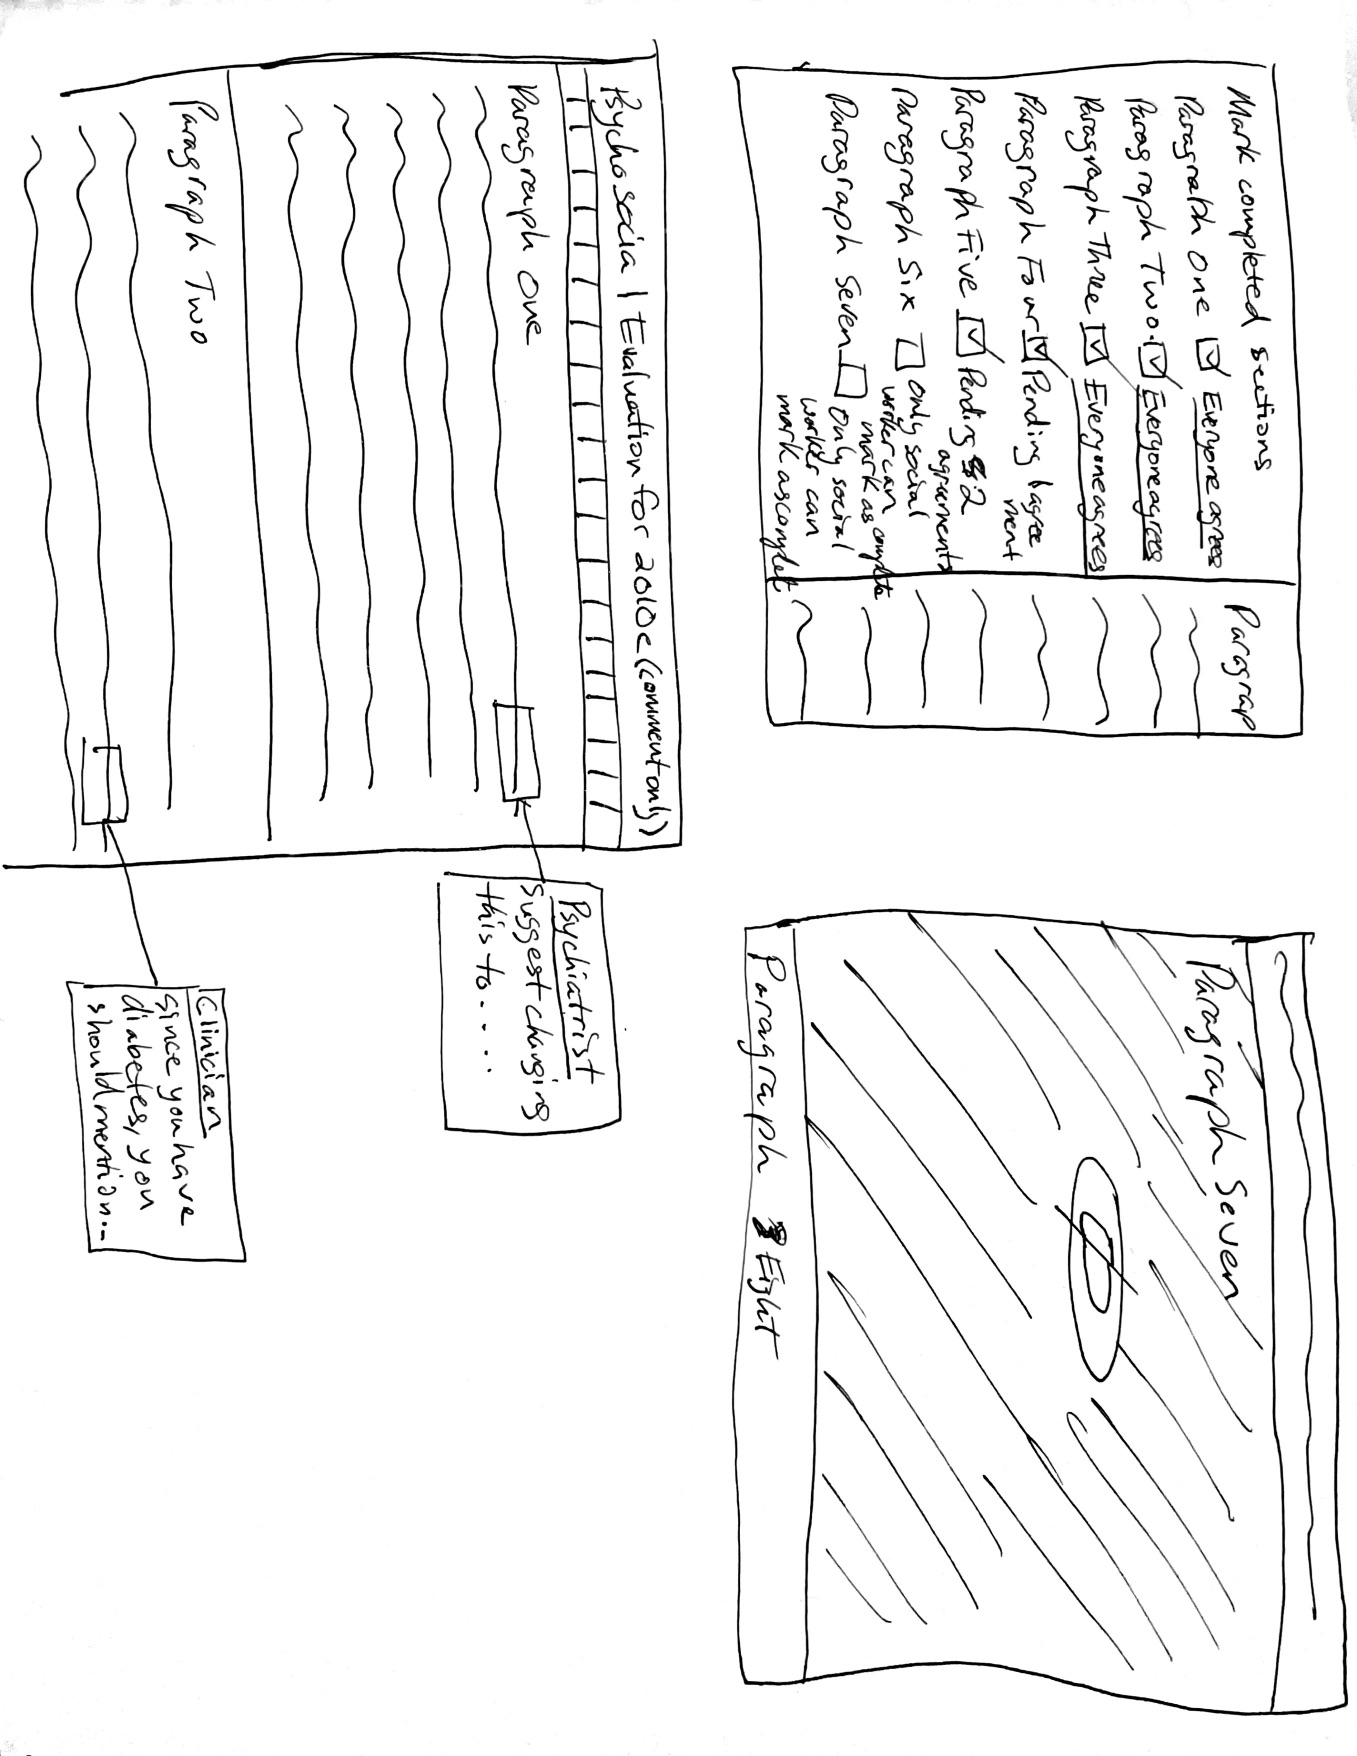 Mark completed sections
Paragraph One Everyone agrees
Paragraph Two. Everyone agrees
Paragraph Three Everyone agrees
Paragraph Four Pending 1 agree
ment
Paragraph Five Pending 2
agreements
Paragraph Six only social
worker can
mark as complete
Paragraph Seven only social
worker can
mark as complete
Paragrap
Paragraph Seven
Paragraph Eight
Psychosocial Evaluation for 2010c (comment only)
Paragraph One
Psychiatrist
suggest changing
this to.....
Paragraph Two
Clinician
since you have
diabetes, you
should mention...